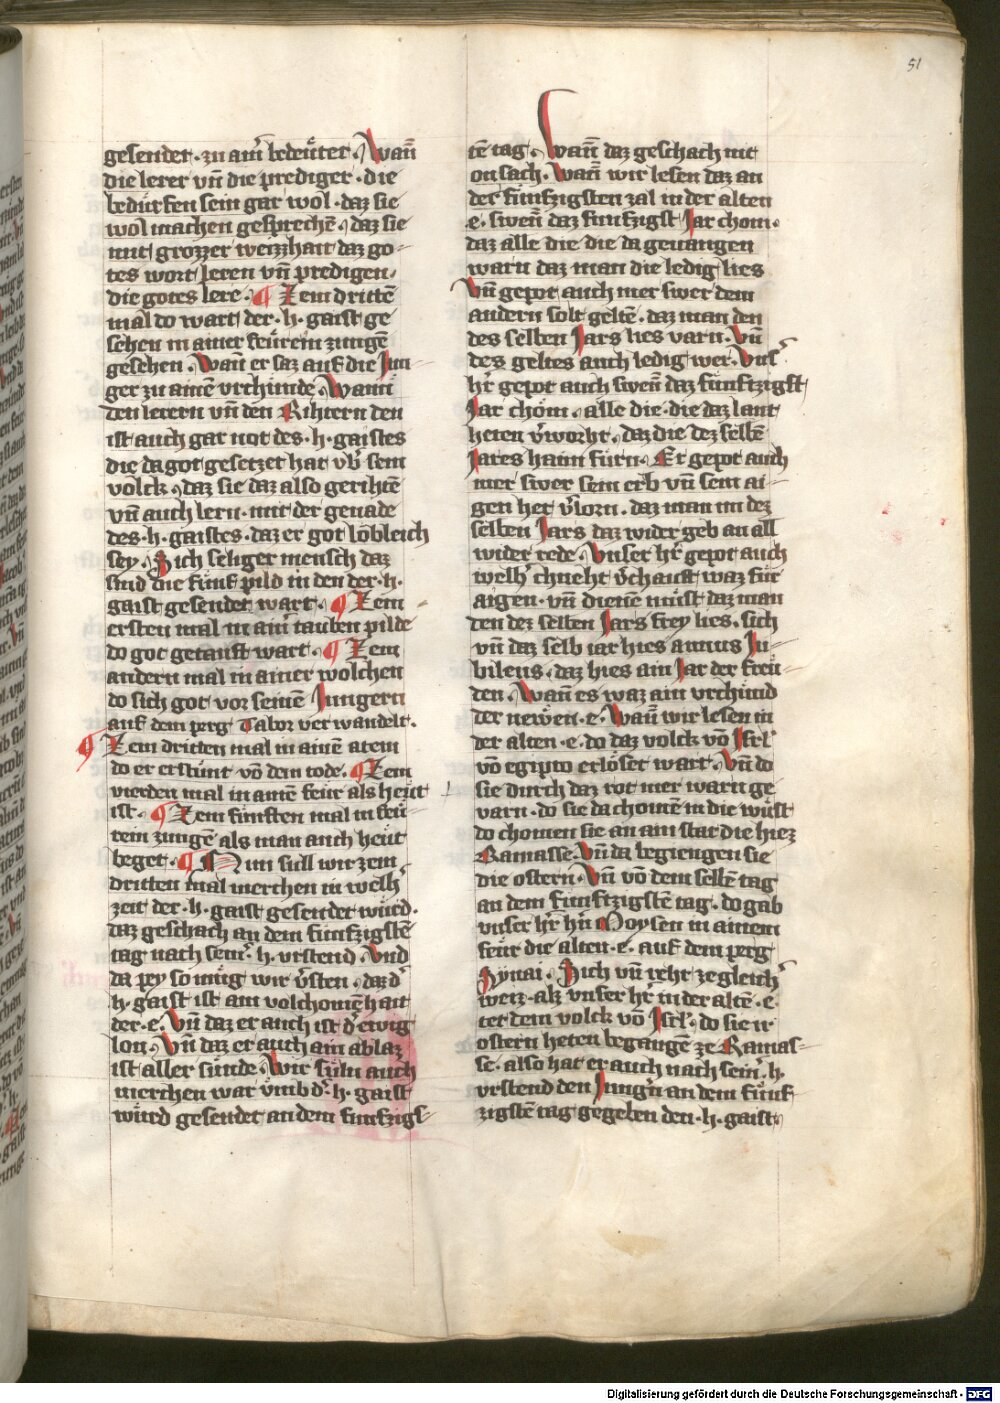 51
gesendet · zu aim̄ bedeuͤter · Wañ
die lerer vn̄ die prediger · die
beduͤrfen sein gar wol · daz sie
wol machen gesprechē · daz sie
mit grozzer weizhait daz go-
tes wort leren vn̄ predigen ·
die gotes lere · ¶ Zem drittē
mal do wart der · h · gaist ge
sehen in ainer feuͤrein zungē
gesehen · Wañ er saz auf die Jun-
ger zu ainē vrchuͤnde · Wann
den lerern vn̄ den Rihtern den
ist auch gar not des · h · gaistes
die da got gesetzet hat vb̾ sein
volck · daz sie daz also gerihtē
vn̄ auch lern · mit der genade
des · h · gaistes · daz er got loͤbleich
sey · Sich seliger mensch daz
sind die fuͤnf pild in den der · h ·
gaist gesendet wart · ¶ Zem
ersten mal in aim̄ tauben pilde
do got getauft wart · ¶ Zem
andern mal in ainer wolchen
do sich got vor seinē Jungern
auf dem perg Tabor verwandelt ·
¶ Zem dritten mal in ainē atem
do er erstuͤnt vō dem tode · ¶ Zem
vierden mal in ainē feuͤr als heuͤt
ist · ¶ Zem fuͤnften mal in feuͤ-
rein zungē als man auch heuͤt
beget · ¶ Nun suͤll wir zem
dritten mal merchen in welh̾
zeit der · h · gaist gesendet wuͤrd ·
daz geschach an dem fuͤnfzigstē
tag nach sein̾ · h · vrstend · Vnd
da pey so muͤg wir v̾sten · daz d̾
h · gaist ist ain volchomēhait
der · e · Vn̄ daz er auch ist d̾ ewig
lon · Vn̄ daz er auch ain ablaz
ist aller suͤnde · Wir suͤln auch
merchen war vͤmb d̾ · h · gaist
wuͤrd gesendet an dem fuͤnfzigs-
tē tag · Wañ daz geschach nit
on sach · Wañ wir lesen daz an
der fuͤnfzigsten zal in der alten
· e · swen̄ daz fuͤnfzigst Jar chom ·
daz alle die die da geuangen
warn daz man die ledig lies
Vn̄ gepot auch mer swer dem
andern solt geltē · daz man den
des selben Jars lies varn · Vn̄
des geltes auch ledig wer · Vns̾
h̾r gepot auch swen̄ daz fuͤnftzigst
Jar choͤm · alle die · die daz lant
heten v̾worht · daz die dez selbē
Jares haim fuͤrn · Er gepot auch
mer swer sein erb vn̄ sein ai-
gen het v̾lorn · daz man im dez
selben Jars daz wider geb an all
wider rede · Vnser h̾r gepot auch
welh̾ chneht v̾chauft waz fuͤr
aigen · vn̄ dienē muͤst daz man
den dez selben Jars frey lies · sich
vn̄ daz selb iar hies annus Ju-
bileus · daz hies ain Jar der freuͤ-
den · Wañ es waz ain vrchuͤnd
der newen · e · Wañ wir lesen in
der alten · e · do daz volck vō Jsrl̾
vō egipto erloͤset wart · Vn̄ do
sie durch daz rot mer warn ge
varn · do sie da chomē in die wuͤst
do chomen sie an ain stat die hiez
Ramasse · Vn̄ da begiengen sie
die ostern · Vn̄ vō dem selbē tag
an dem fuͤnftzigstē tag · do gab
vnser h̾r h̾n Moysen in ainem
feuͤr die alten · e · auf dem perg
Synai · Sich vn̄ reht ze gleich̾
weiz · alz vnser h̾r in der altē · e ·
tet dem volck vō Jsrl̾ · do sie ir
ostern heten begangē ze Ramas-
se · also hat er auch nach sein̾ · h ·
vrstend den Jung̾n an dem fuͤnf
zigstē tag gegeben den · h · gaist ·
Digitalisierung gefördert durch die Deutsche Forschungsgemeinschaft - DFG